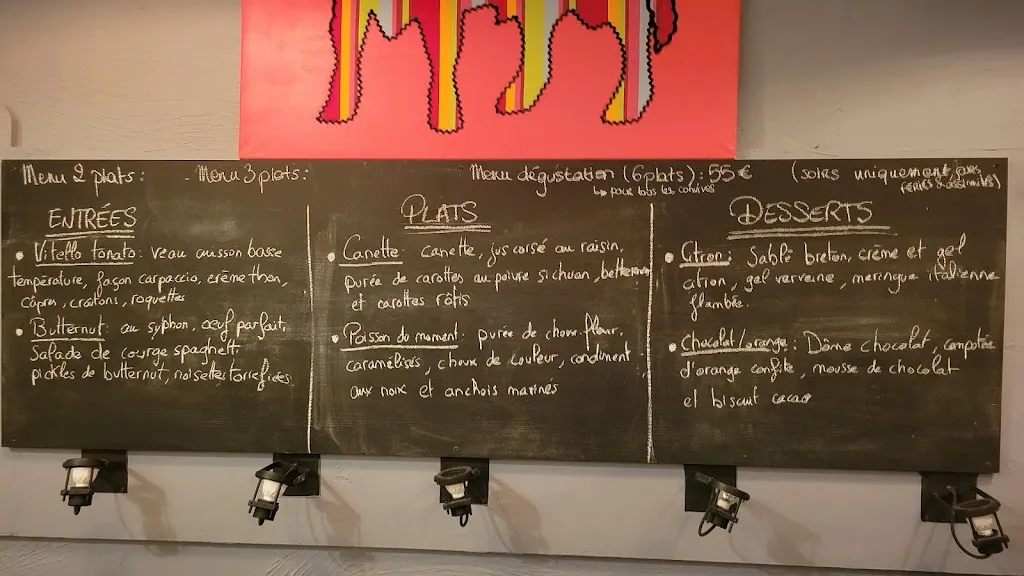 Menu 2 plats :
- Menu 3 plats :
Menu dégustation (6 plats) : 55 €
↳ pour tous les convives
(soirs uniquement,
ENTRÉES
• Vitello tonato : veau cuisson basse
température, façon carpaccio, crème thon,
câpres, croûtons, roquettes
• Butternut : au syphon, œuf parfait,
Salade de courge spaghetti
pickles de butternut, noisettes torréfiées
PLATS
• Canette : canette, jus corsé au raisin,
purée de carottes au poivre sichuan, betterave
et carottes rôtis
• Poisson du moment : purée de choux fleur,
caramélisés, choux de couleur, condiment
aux noix et anchois marinés
DESSERTS
• Citron : Sablé breton, crème et gel
citron, gel verveine, meringue italienne
flambée.
• Chocolat/orange : Dôme chocolat, compotée
d'orange confite, mousse de chocolat
et biscuit cacao